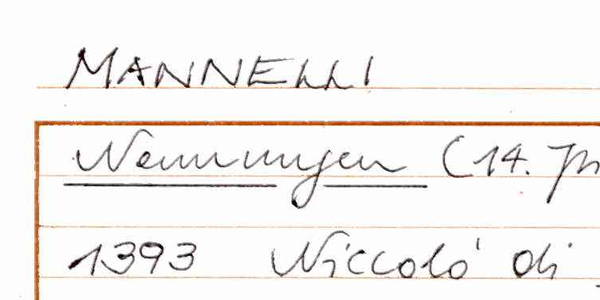 MANNELLI
Nennungen (14. Jh
1393 Niccolò di